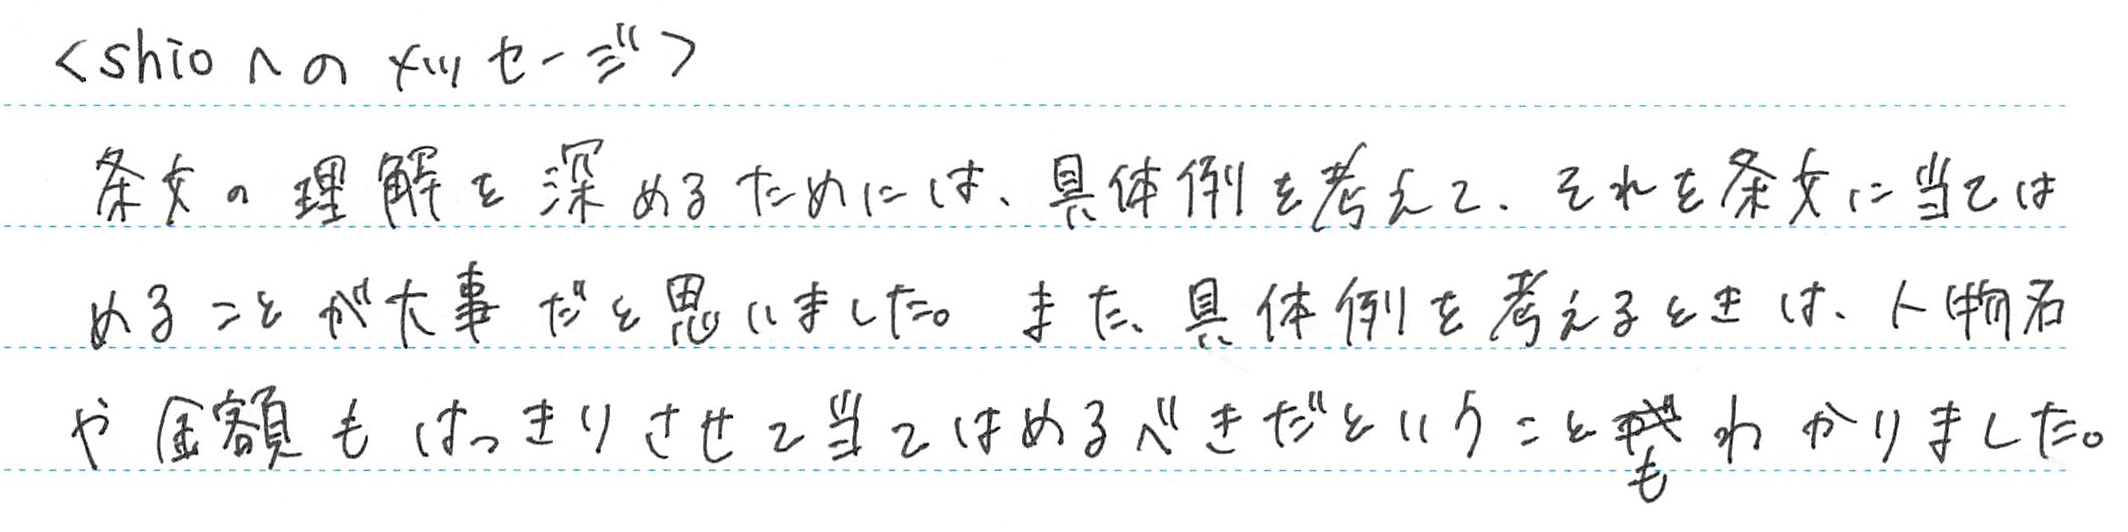 <shioへのメッセージ>
条文の理解を深めるためには、具体例を考えて、それを条文に当ては
めることが大事だと思いました。また、具体例を考えるときは、人物名
や金額もはっきりさせて当てはめるべきだということもわかりました。